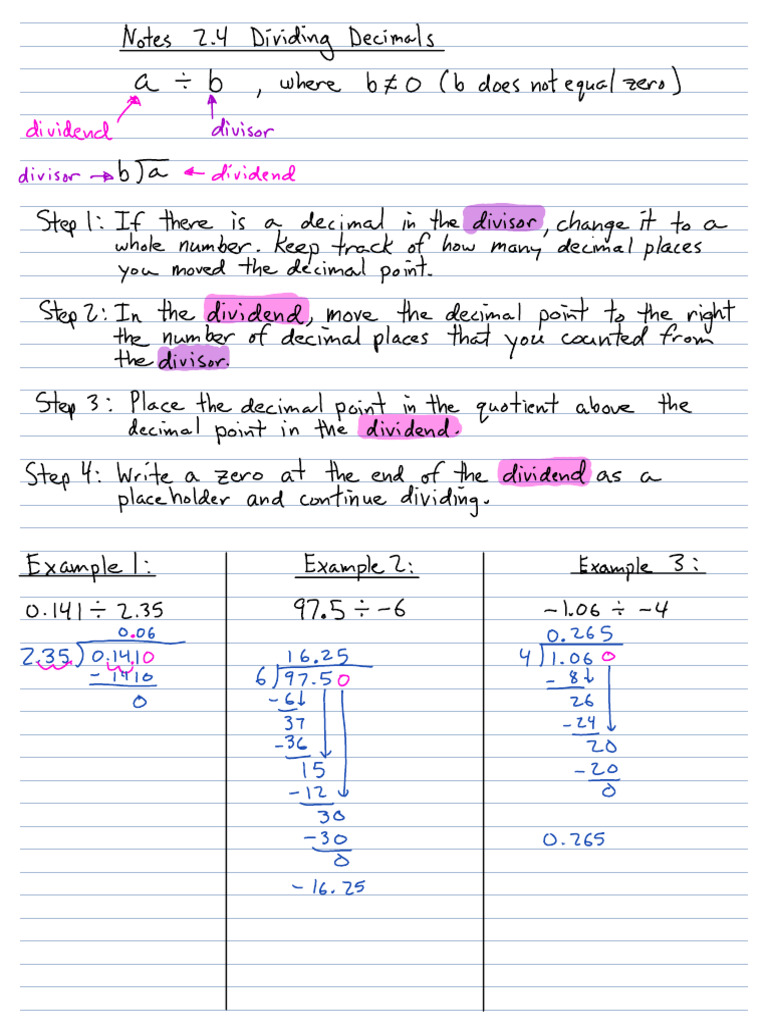 Notes 2.4 Dividing Decimals
a ÷ b , where b≠0 (b does not equal zero)
dividend divisor
divisor → b)a ← dividend
Step 1: If there is a decimal in the divisor, change it to a
whole number. Keep track of how many decimal places
you moved the decimal point.
Step 2: In the dividend, move the decimal point to the right
the number of decimal places that you counted from
the divisor.
Step 3: Place the decimal point in the quotient above the
decimal point in the dividend.
Step 4: Write a zero at the end of the dividend as a
placeholder and continue dividing.
Example 1:
0.141 ÷ 2.35
0.06
2.35.)0.14.10
- 1410
0
Example 2:
97.5 ÷ -6
16.25
6)97.50
-6↓
37
-36
15
-12
30
-30
0
-16.25
Example 3:
-1.06 ÷ -4
0.265
4)1.060
- 8↓
26
-24
20
-20
0
0.265